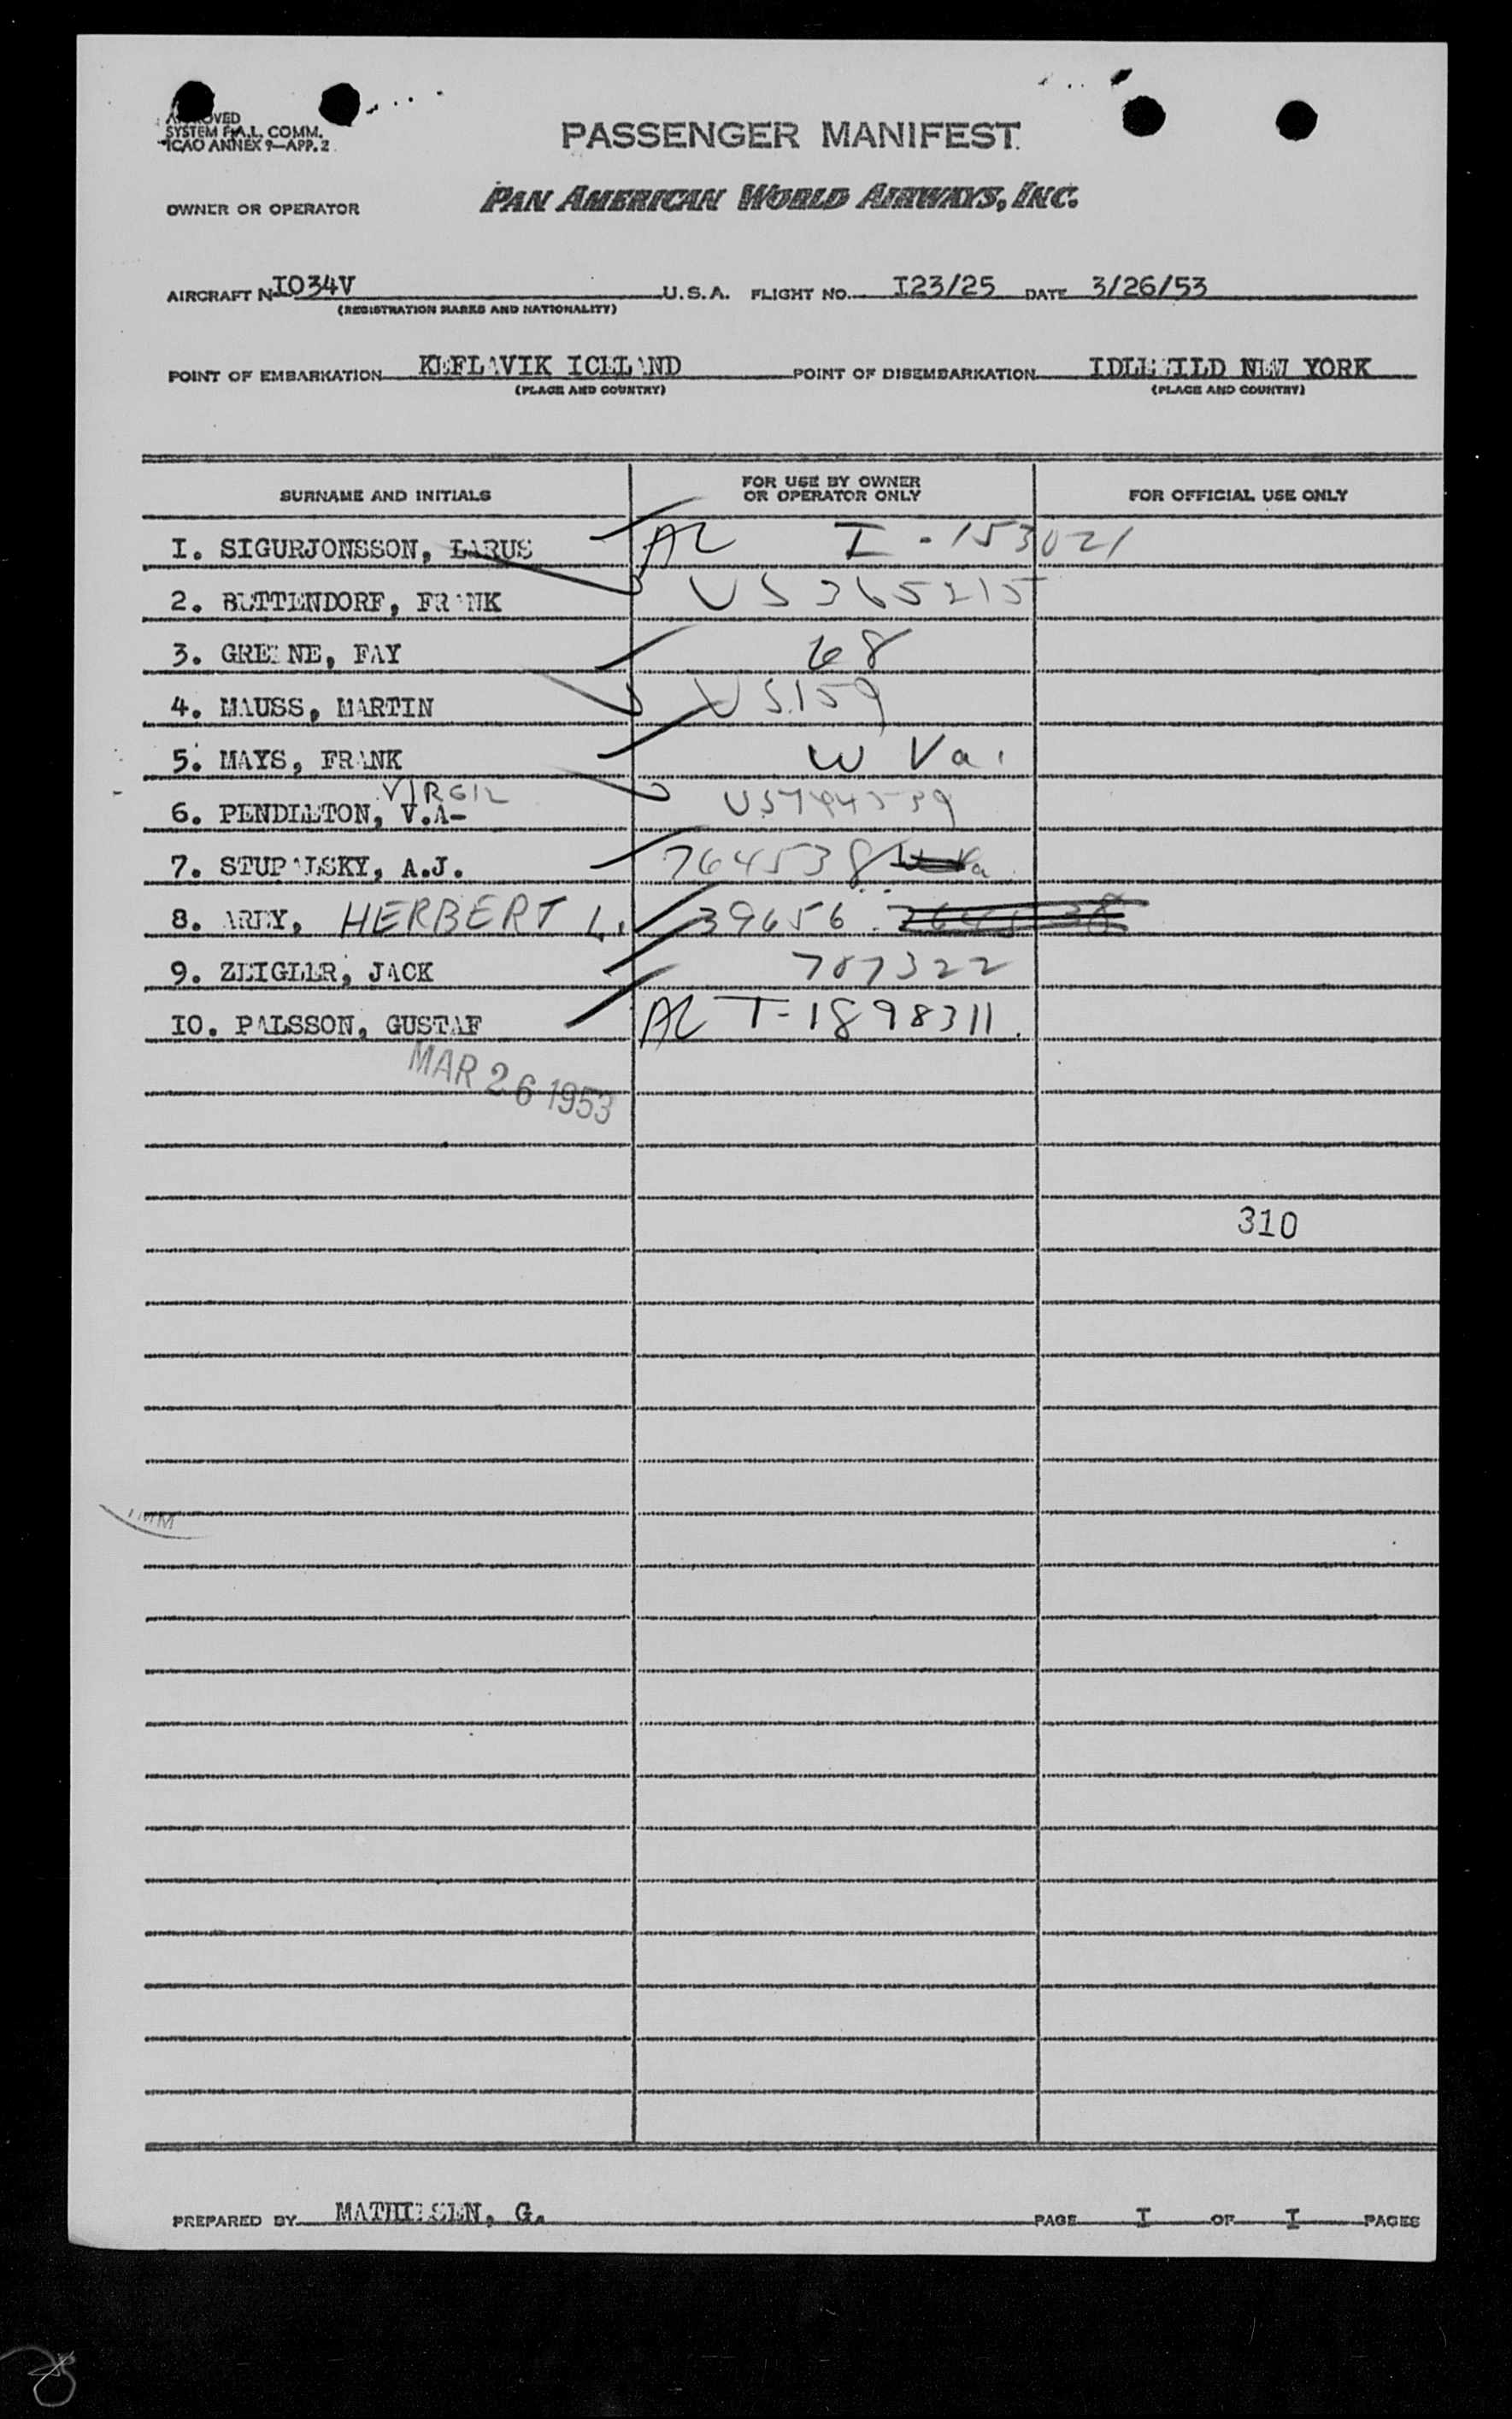 APPROVED
SYSTEM F.A.L. COMM.
ICAO ANNEX 9—APP. 2
PASSENGER MANIFEST
OWNER OR OPERATOR PAN AMERICAN WORLD AIRWAYS, INC.
AIRCRAFT N I034V U.S.A. FLIGHT NO. I23/25 DATE 3/26/53
(REGISTRATION MARKS AND NATIONALITY)
POINT OF EMBARKATION KEFLAVIK ICELAND POINT OF DISEMBARKATION IDLEWILD NEW YORK
(PLACE AND COUNTRY) (PLACE AND COUNTRY)
SURNAME AND INITIALS FOR USE BY OWNER OR OPERATOR ONLY FOR OFFICIAL USE ONLY
I. SIGURJONSSON, LARUS AL I-153021
2. BETTENDORF, FRANK US 365215
3. GREENE, FAY 68
4. MAUSS, MARTIN US 159
5. MAYS, FRANK W Va.
VIRGIL
6. PENDLETON, V.A-
7. STUPALSKY, A.J. 764538
8. AREY, HERBERT L. 39656
9. ZEIGLER, JACK 707322
I0. PALSSON, GUSTAF AL T-1898311.
MAR 26 1953
310
IMM
PREPARED BY MATHIESEN, G. PAGE I OF I PAGES